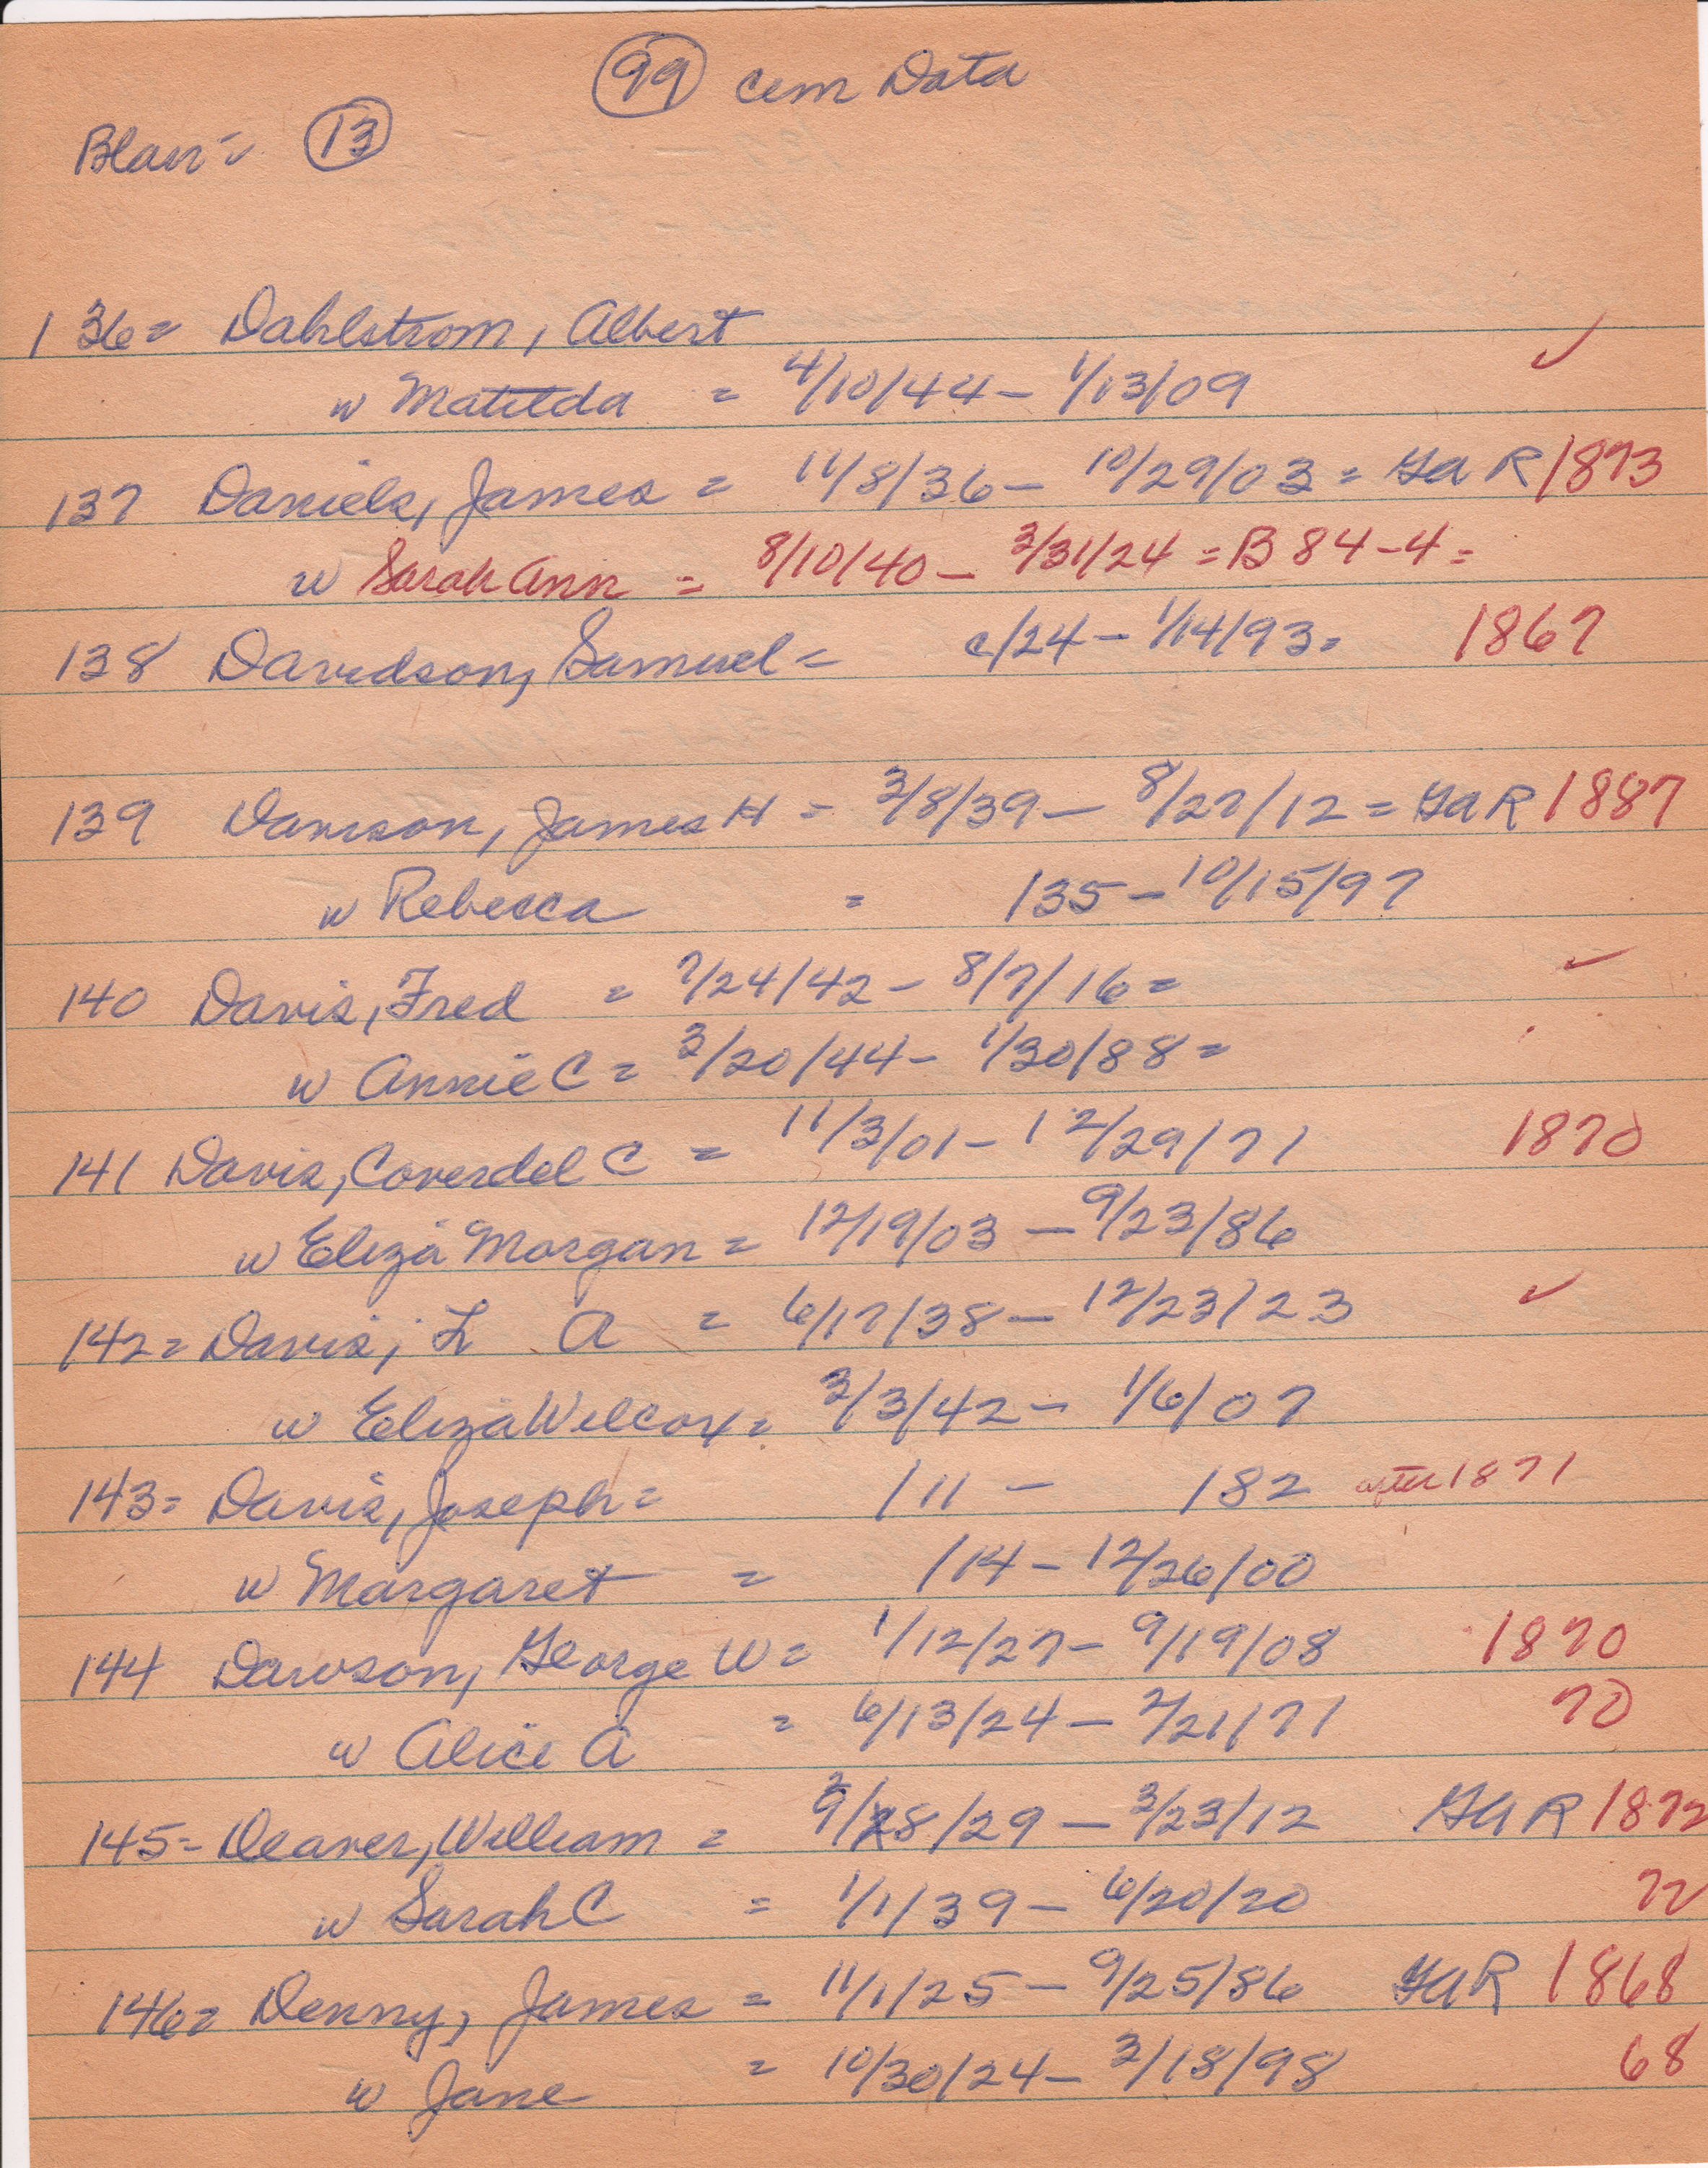 99 Cem Data
Blair = 13
136 = Dahlstrom, Albert ✓
w Matilda = 4/10/44 - 1/13/09
137 Daniels, James = 11/8/36 - 10/29/03 = GAR 1873
w Sarah Ann = 8/10/40 - 3/31/24 = B 84-4 =
138 Davidson, Samuel = c/24 - 1/14/93 = 1867
139 Davison, James H = 3/8/39 - 8/27/12 = GAR 1887
w Rebecca = /35 - 10/15/97
140 Davis, Fred = 7/24/42 - 8/7/16 = ✓
w Annie C = 3/20/44 - 1/30/88 =
141 Davis, Coverdel C = 11/3/01 - 12/29/71 1870
w Eliza Morgan = 12/19/03 - 9/23/86
142 = Davis, L A = 6/17/38 - 12/23/23 ✓
w Eliza Wilcox = 3/3/42 - 1/6/07
143 = Davis, Joseph = /11 - /82 after 1871
w Margaret = /14 - 12/26/00
144 Dawson, George W = 1/12/27 - 9/19/08 1870
w Alice A = 6/13/24 - 2/21/71 70
145 - Deaver, William = 8/29 - 3/23/12 GAR 1872
w Sarah C = 1/1/39 - 6/20/20 72
146 = Denny, James = 11/1/25 - 9/25/86 GAR 1868
w Jane = 10/30/24 - 3/18/98 68